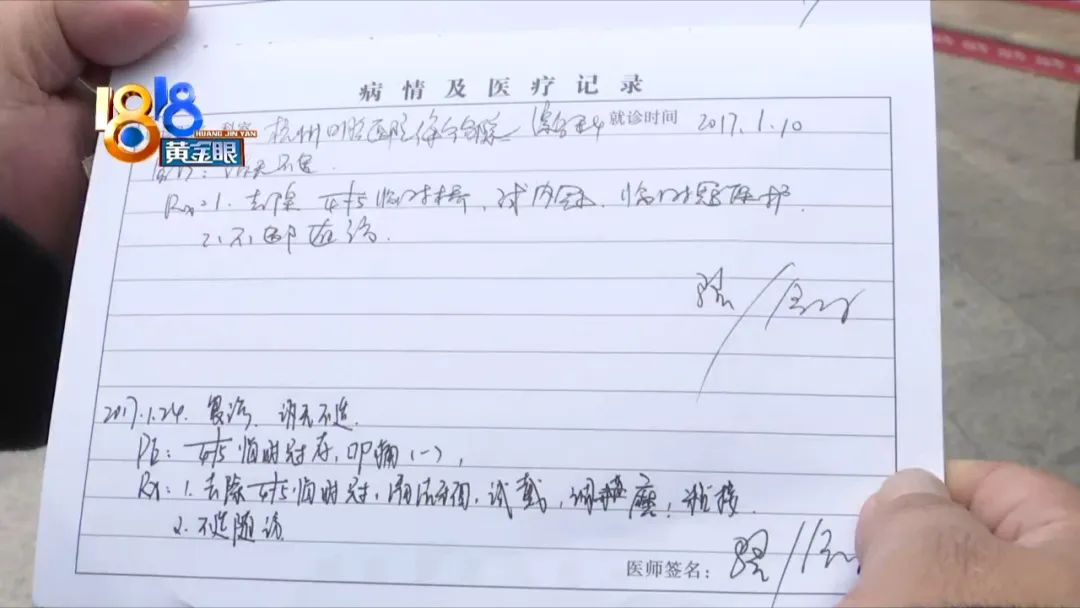 病情及医疗记录
1818
HUANG JIN YAN
黄金眼
科室 杭州口腔医院 就诊时间 2017.1.10
Rx:1.去除 临时桥,试内冠,临时冠保护.
2.不适随诊.
2017.1.24. 复诊. 诉无不适.
PE: 临时冠存,叩痛(-),
Rx:1.去除 临时冠,清洁 ,试戴,调 磨,粘接.
2.不适随访
医师签名: